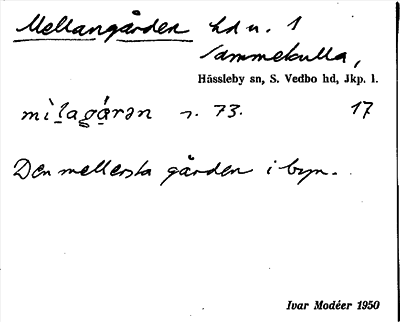 Mellangården hd n. 1
Sammekulla,
Hässleby sn, S. Vedbo hd, Jkp. l.
mìlagá̱rən s. 73. 17
Den mellersta gården i byn.
Ivar Modéer 1950